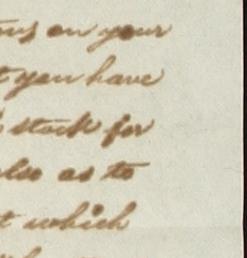 on your
t you have
stock for
also as to
t which